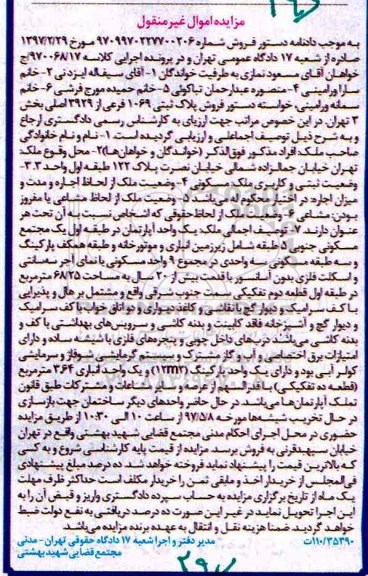 مزایده اموال غیرمنقول
به موجب دادنامه دستور فروش شماره ۹۷۰۹۹۷۰۲۲۷۷۰۰۲۰۶ مورخ ۱۳۹۷/۲/۲۹
صادره از شعبه ۱۷ دادگاه عمومی تهران و در پرونده اجرایی کلاسه ۹۷۰۰۶۸/۱۷/ج
خواهان آقای مسعود نمازی به طرفیت خواندگان ۱- آقای سیف‌اله ایزدنی ۲- خانم
سارا ورامینی ۴- منصوره عبدارحمان تباکوئی ۵- خانم حمیده مورج فرشی ۶- خانم
سمانه ورامینی، خواسته دستور فروش پلاک ثبتی ۱۰۶۹ فرعی از ۳۹۲۹ اصلی بخش
۳ تهران، در این خصوص مراتب جهت ارزیابی به کارشناس رسمی دادگستری ارجاع
و به شرح ذیل توصیف اجماعلی و ارزیابی گردیده است. ۱- نام و نام خانوادگی
صاحب ملک: افراد مذکور فوق‌الذکر (خواندگان و خواهان‌ها) ۲- محل وقوع ملک
تهران خیابان جمالزاده شمالی خیابان نصرت پلاک ۱۲۲ طبقه اول واحد ۳،۳-
وضعیت ثبتی و کاربری ملک: مسکونی ۴- وضعیت ملک از لحاظ اجاره و مدت و
میزان اجاره: در اختیار محکوم له می‌باشد. ۵- وضعیت ملک از لحاظ مشاعی یا مفروز
بودن: مشاعی ۶- وضعیت ملک از لحاظ حقوقی که اشخاص نسبت به آن تحت هر
عنوان دارند. ۷- توصیف اجمالی ملک: یک واحد آپارتمان در طبقه اول یک مجتمع
مسکونی جنوبی ۵ طبقه شامل زیرزمین انباری و موتورخانه و طبقه همکف پارکینگ
و سه طبقه مسکونی سه واحدی در مجموع ۹ واحد مسکونی با نمای آجر سه‌سانتی
و اسکلت فلزی بدون آسانسور با قدمت بیش از ۲۰ سال به مساحت ۶۸/۲۵ مترمربع
در طبقه اول قطعه دوم تفکیکی سمت جنوب شرقی واقع و مشتمل بر هال و پذیرایی
با کف سرامیک و دیوار گچ با نقاشی و کاغذ دیواری و دو اتاق خواب با کف سرامیک
و دیوار گچ و آشپزخانه فاقد کابینت و بدنه کاشی و سرویس‌های بهداشتی با کف و
بدنه کاشی می‌باشند درب‌های داخل چوبی و پنجره‌های فلزی با شیشه ساده و دارای
امتیازات برق اختصاصی و آب و گاز مشترک و سیستم گرمایشی شوفاژ و سرمایشی
کولر آبی بود و دارای یک واحد پارکینگ (۱۲m۲) و یک واحد انباری ۳،۶۴ مترمربع
(قطعه ده تفکیکی) با قدرالسهم از عرصه و سایر مشاعات و مشترکات طبق قانون
تملک آپارتمان‌ها می‌باشد در حال حاضر واحدهای دیگر ساختمان جهت بازسازی
در حال تخریب شیشه‌ها مورخه ۹۷/۵/۸ از ساعت ۱۰ الی ۱۰:۳۰ از طریق مزایده
حضوری در محل اجرای احکام مدنی مجتمع قضایی شهید بهشتی واقع در تهران
خیابان سپهبدقرنی به فروش برسد. مزایده از قیمت پایه کارشناسی شروع و به کسی
که بالاترین قیمت را پیشنهاد نماید فروخته خواهد شد. ده درصد مبلغ پیشنهادی
فی‌المجلس از خریدار اخذ و مابقی ثمن را خریدار مکلف است حداکثر ظرف مهلت
یک ماه از تاریخ برگزاری مزایده به حساب سپرده دادگستری واریز و قبض آن را به
این اجرا تحویل نماید در غیر این صورت ده درصد دریافتی به نفع دولت ضبط
خواهد گردید. ضمنا هزینه نقل و انتقال به عهده برنده مزایده می‌باشد.
۱۱۰/۳۵۳۹۰ت مدیر دفتر و اجرا شعبه ۱۷ دادگاه حقوقی تهران - مدنی
مجتمع قضایی شهید بهشتی